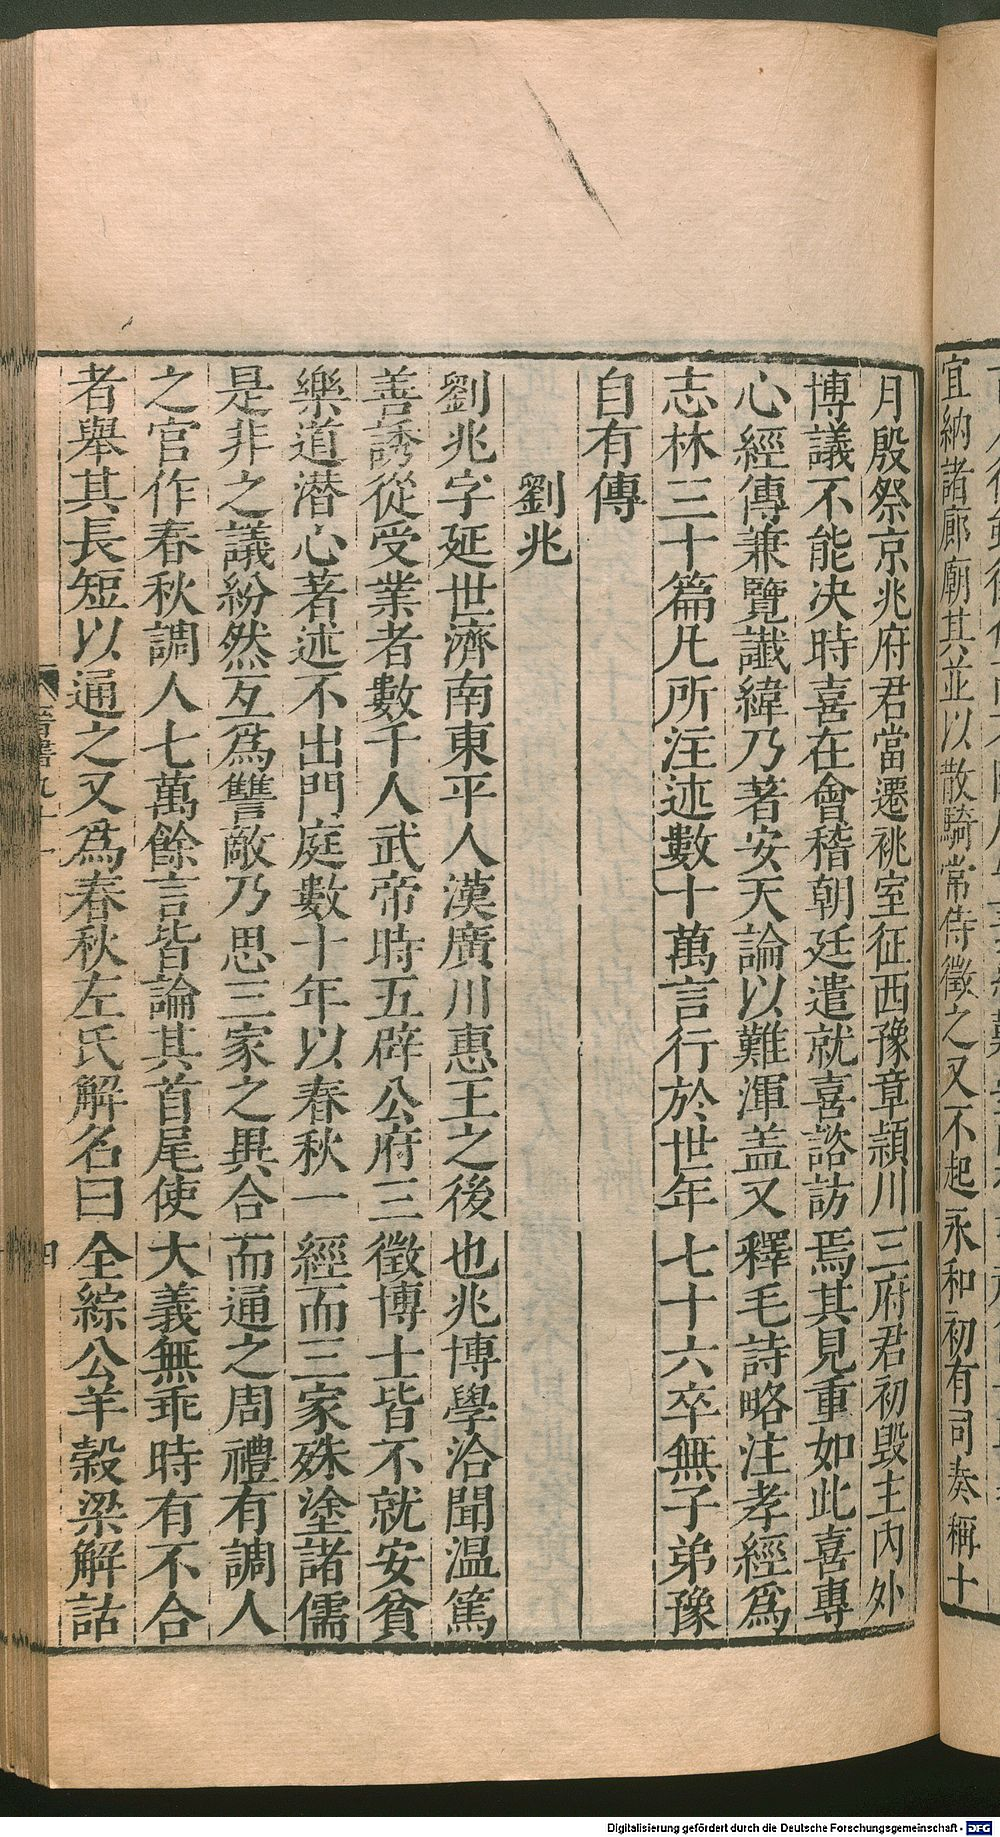 宜納諸廊廟其並以散騎常侍徵之又不起永和初有司奏稱十
月殷祭京兆府君當遷祧室征西豫章潁川三府君初毀主內外
博議不能決時喜在會稽朝廷遣就喜諮訪焉其見重如此喜專
心經傳兼覽讖緯乃著安天論以難渾盖又釋毛詩略注孝經爲
志林三十篇凡所注述數十萬言行於世年七十六卒無子弟豫
自有傳
劉兆
劉兆字延世濟南東平人漢廣川惠王之後也兆博學洽聞温篤
善誘從受業者數千人武帝時五辟公府三徵博士皆不就安貧
樂道潛心著述不出門庭數十年以春秋一經而三家殊塗諸儒
是非之議紛然互爲讐敵乃思三家之異合而通之周禮有調人
之官作春秋調人七萬餘言皆論其首尾使大義無乖時有不合
者舉其長短以通之又爲春秋左氏解名曰全綜公羊穀梁解詁
晉書九十一
四
Digitalisierung gefördert durch die Deutsche Forschungsgemeinschaft - DFG